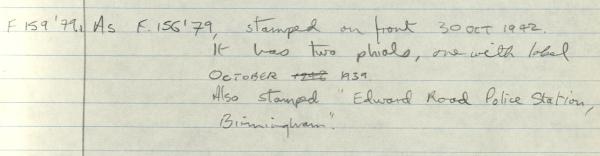 F 159'79, As F. 156'79, stamped on front 30 OCT 1942.
It has two phials, one with label
OCTOBER 1942 1939.
Also stamped "Edward Road Police Station,
Birmingham".